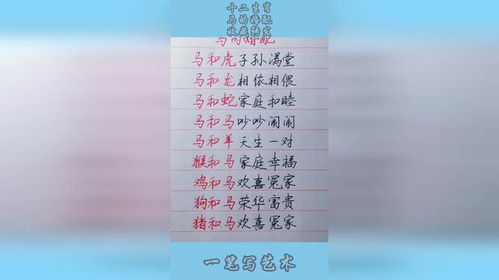 十二生肖
马的婚配
收藏转发
马的婚配
马和虎子孙满堂
马和龙相依相偎
马和蛇家庭和睦
马和马吵吵闹闹
马和羊天生一对
猴和马家庭幸福
鸡和马欢喜冤家
狗和马荣华富贵
猪和马欢喜冤家
一笔写艺术